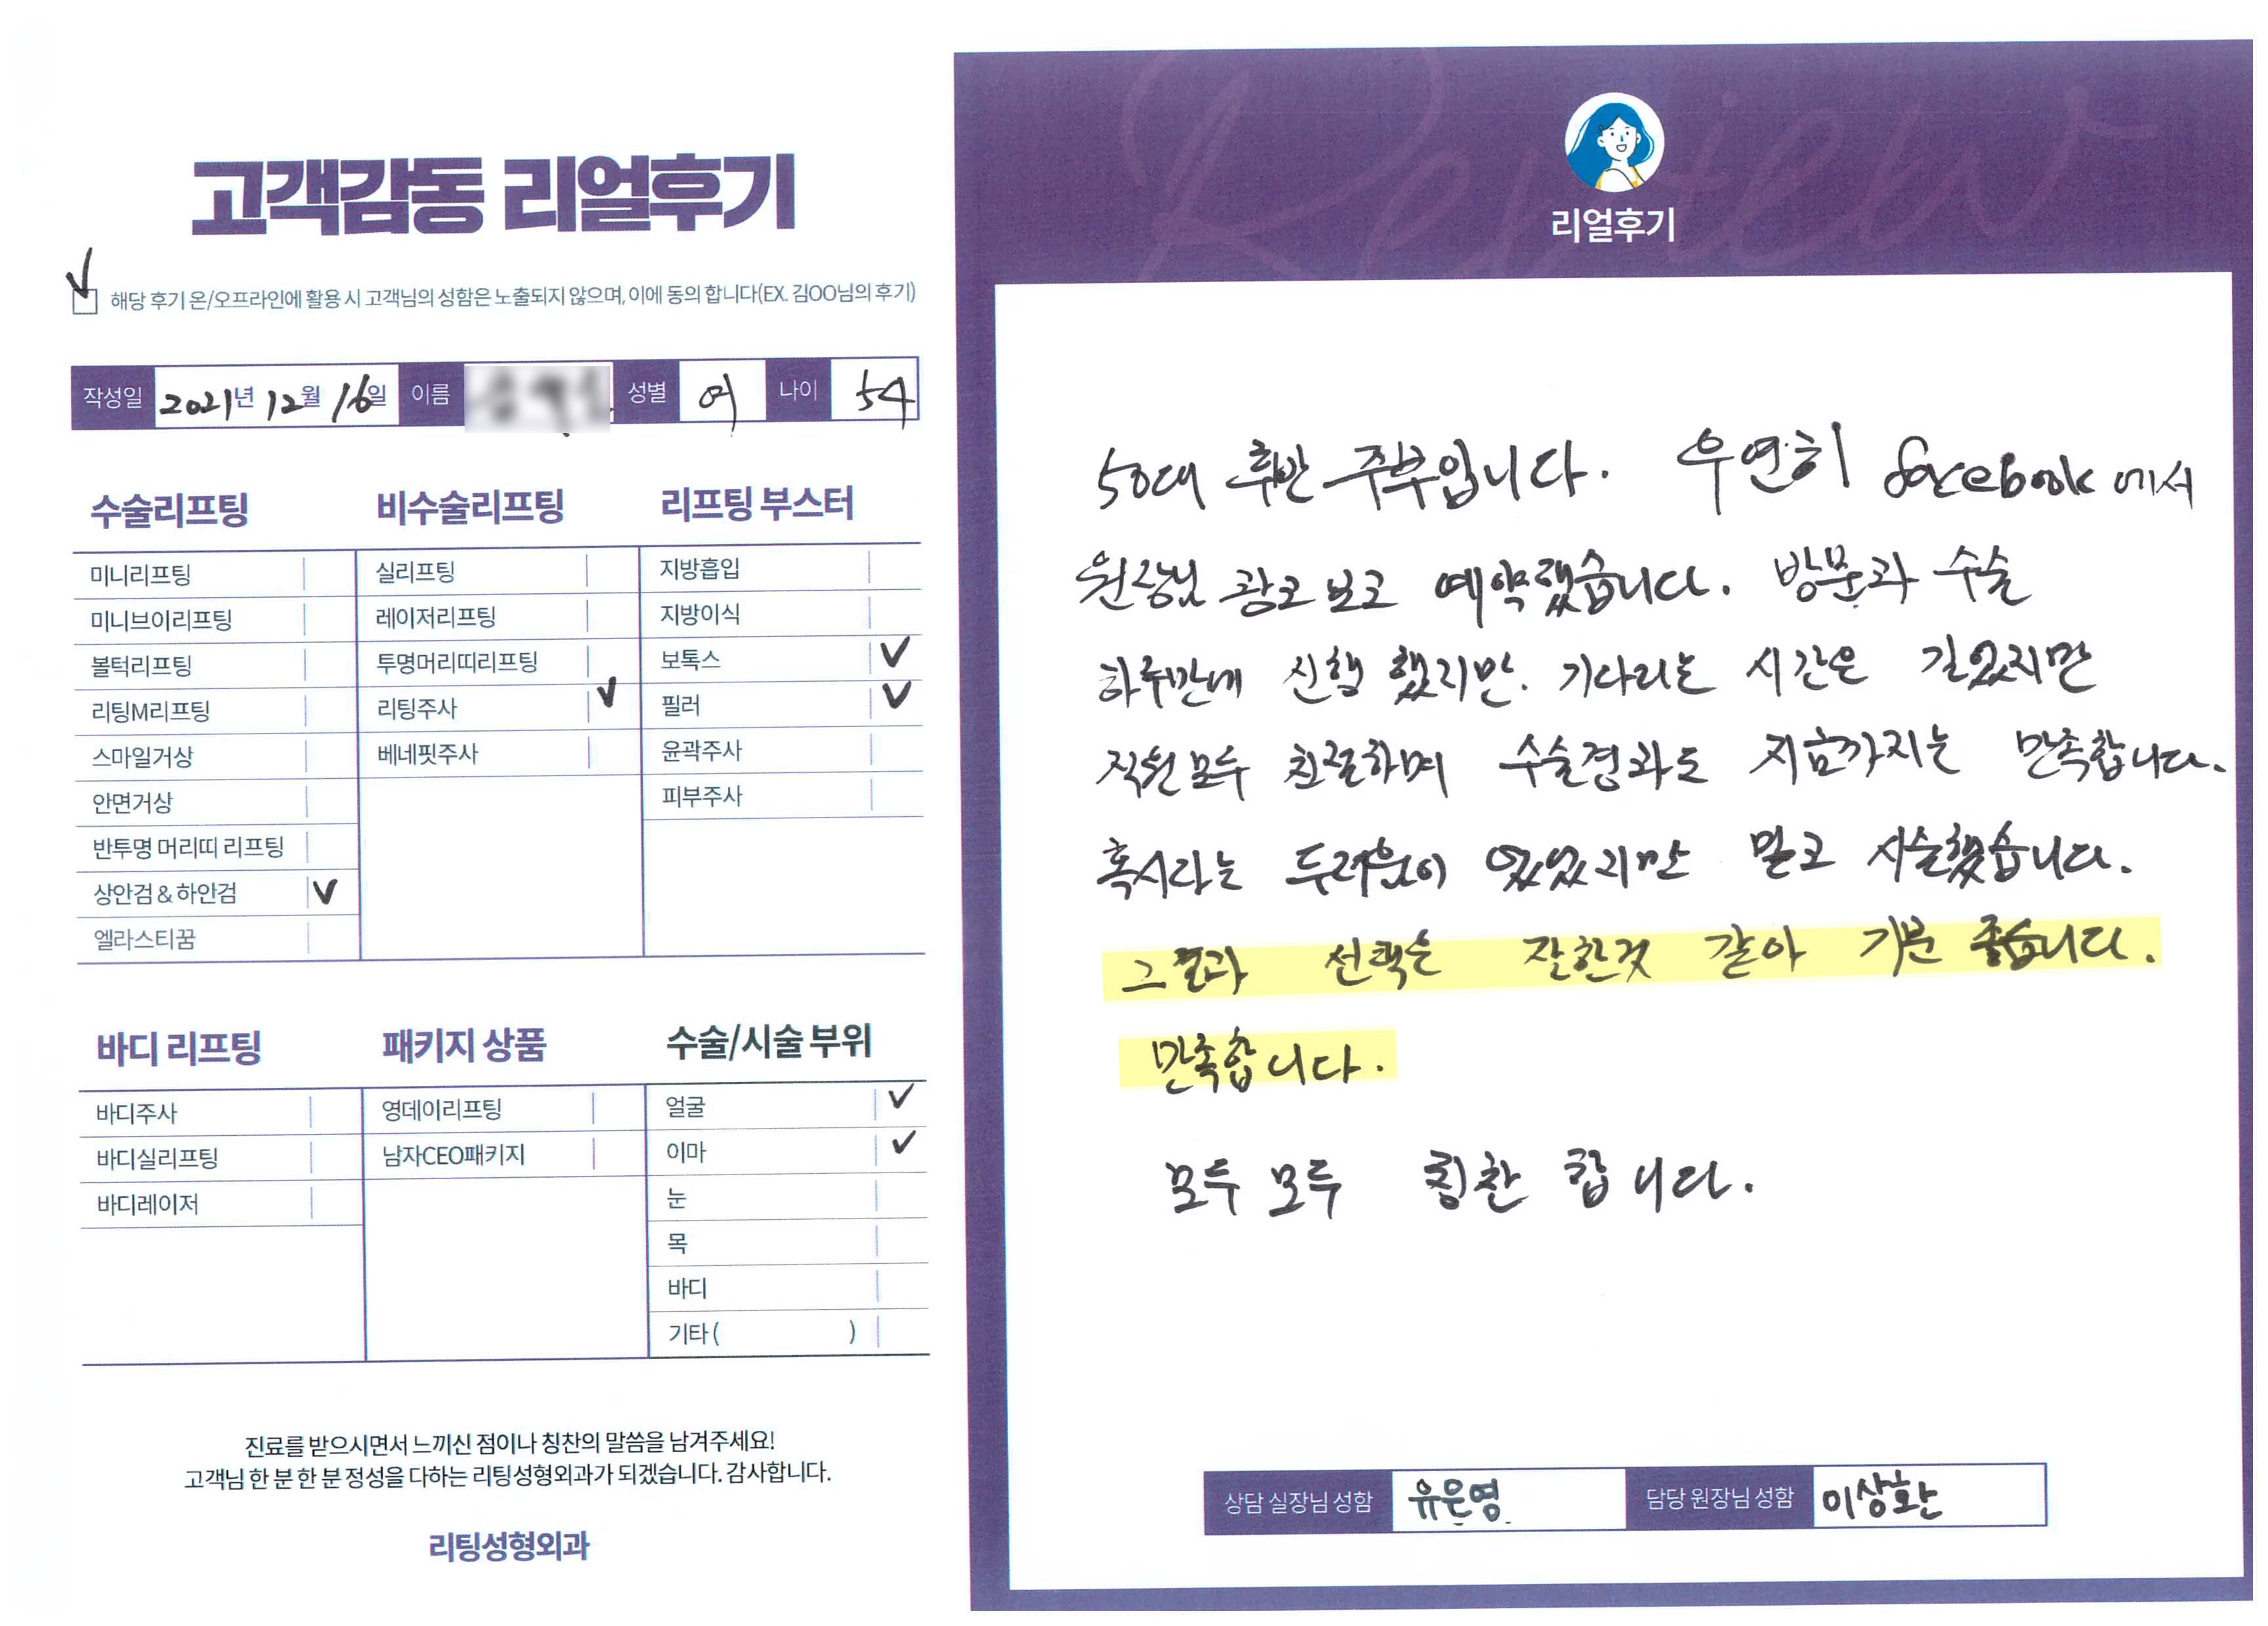 고객감동 리얼후기
해당 후기 온/오프라인에 활용 시 고객님의 성함은 노출되지 않으며, 이에 동의 합니다(EX. 김OO님의 후기)
작성일 2021년 12월 16일 이름 성별 여 나이 54
수술리프팅
미니리프팅
미니브이리프팅
볼턱리프팅
리팅M리프팅
스마일거상
안면거상
반투명 머리띠 리프팅
상안검 & 하안검
엘라스티꿈
비수술리프팅
실리프팅
레이저리프팅
투명머리띠리프팅
리팅주사
베네핏주사
리프팅 부스터
지방흡입
지방이식
보톡스
필러
윤곽주사
피부주사
바디 리프팅
바디주사
바디실리프팅
바디레이저
패키지 상품
영데이리프팅
남자CEO패키지
수술/시술 부위
얼굴
이마
눈
목
바디
기타 ( )
진료를 받으시면서 느끼신 점이나 칭찬의 말씀을 남겨주세요!
고객님 한 분 한 분 정성을 다하는 리팅성형외과가 되겠습니다. 감사합니다.
리팅성형외과
Review
리얼후기
50대 후반 주부입니다. 우연히 facebook에서
원장님 광고 보고 예약했습니다. 방문과 수술
하루만에 진행 했지만. 기다리는 시간은 길었지만
직원 모두 친절하며 수술결과도 지금까지는 만족합니다.
혹시라는 두려움이 있었지만 믿고 시술했습니다.
그 결과 선택은 잘한것 같아 기분 좋습니다.
만족합니다.
모두 모두 칭찬 합니다.
상담 실장님 성함 유은영 담당 원장님 성함 이상환